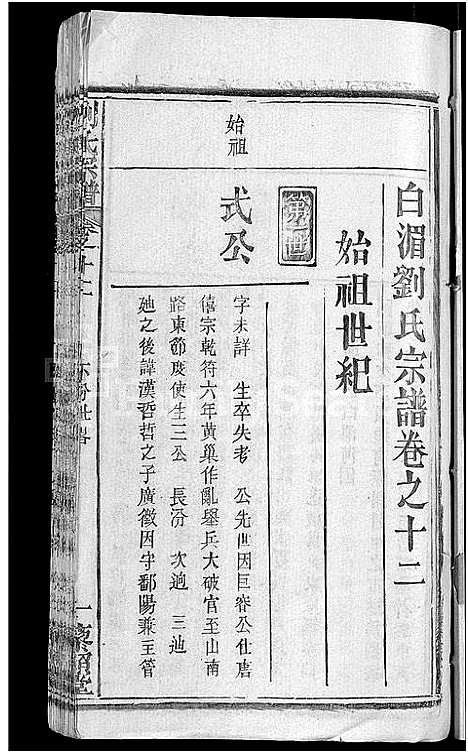 白湄劉氏宗譜卷之十二
始祖世紀
第一世
始祖
式公
字未詳 生卒失考 公先世因巨容公仕唐
僖宗乾符六年黃巢作亂舉兵大破官至山南
路東節度使生三公 長汾 次逈 三迪
迪之後諱漢哲哲之子廣徽因守鄱陽兼主管
劉氏宗譜
卷之十二